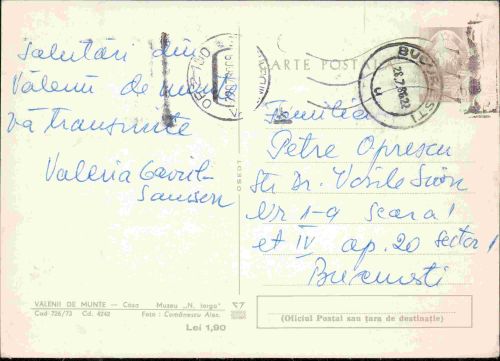 Salutări din
Vălenii de munte
vă transmite
Valeria Gavril
CARTE POSTALĂ
BUCUREȘTI
Familia
Petre Oprescu
Str Dr. Vasile
Nr 1-9 scara 1
et IV ap. 20 sector 1
București
OSEDT
VALENII DE MUNTE — Casa Muzeu „N. Iorga”
Cod 726/73 Cd. 4242 Foto : Comănescu Alex.
Lei 1,90
(Oficiul Postal sau țara de destinație)